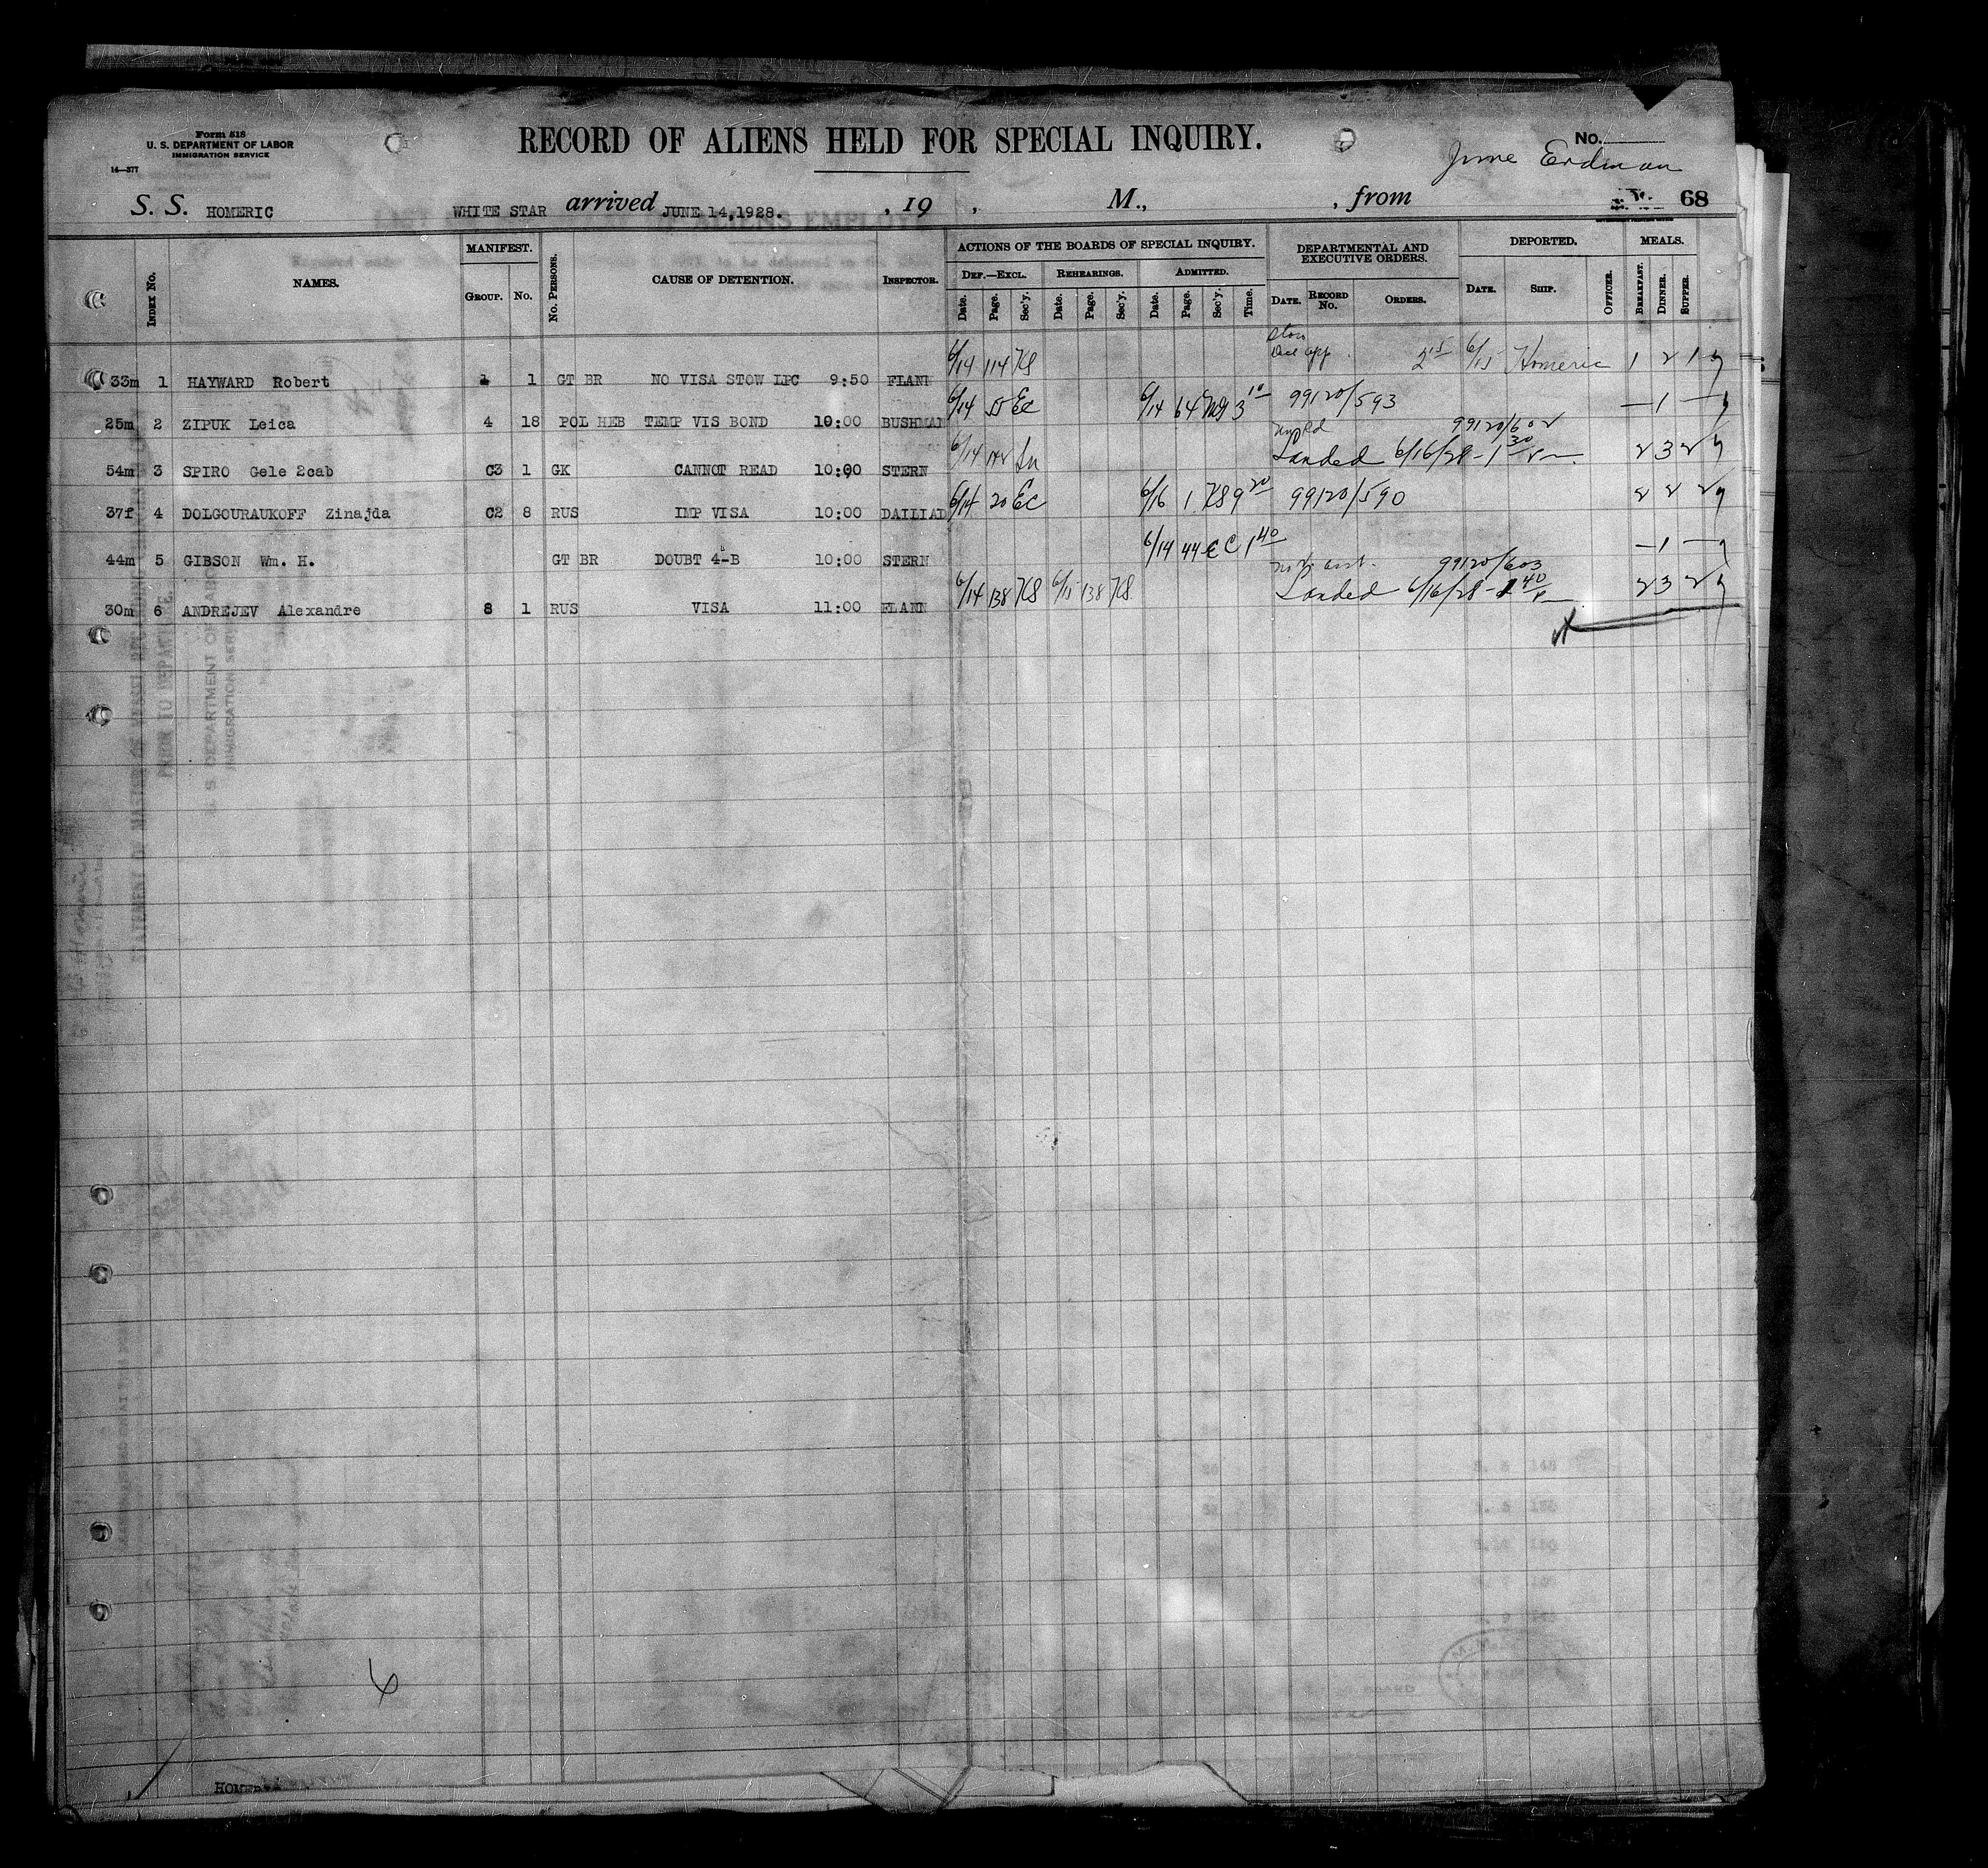 Form 518
U. S. DEPARTMENT OF LABOR
IMMIGRATION SERVICE
14—377
RECORD OF ALIENS HELD FOR SPECIAL INQUIRY.
No.
Erdman
S. S. HOMERIC WHITE STAR arrived JUNE 14,1928. , 19 , M., , from 68
INDEX No. NAMES. MANIFEST. GROUP. No. No. PERSONS. CAUSE OF DETENTION. INSPECTOR. ACTIONS OF THE BOARDS OF SPECIAL INQUIRY. DEPARTMENTAL AND EXECUTIVE ORDERS. DEPORTED. MEALS.
DEF.—EXCL. REHEARINGS. ADMITTED.
Date. Page. Sec'y. Date. Page. Sec'y. Date. Page. Sec'y. Time. DATE. RECORD No. ORDERS. DATE. SHIP. OFFICER. BREAKFAST. DINNER. SUPPER.
33m 1 HAYWARD Robert 1 1 GT BR NO VISA STOW LPC 9:50 FLANN 6/14 114 KS 2 15 6/15 Homeric 1 2 1
25m 2 ZIPUK Leica 4 18 POL HEB TEMP VIS BOND 10:00 BUSHMAN 6/14 55 EC 6/14 64 3 10 99120/593 — 1 —
99120/602
54m 3 SPIRO Gele 2cab C3 1 GK CANNOT READ 10:00 STERN 6/14 Landed 6/16/28 - 1 30 2 3 2
37f 4 DOLGOURAUKOFF Zinajda C2 8 RUS IMP VISA 10:00 DAILIAD 6/14 20 EC 6/16 1 KS 9 20 99120/590 2 2 2
44m 5 GIBSON Wm. H. GT BR DOUBT 4-B 10:00 STERN 6/14 44 EC 1 40 — 1 —
99120/603
30m 6 ANDREJEV Alexandre 8 1 RUS VISA 11:00 FLANN 6/14 138 KS 6/15 138 KS Landed 6/16/28 - 1 40 2 3 2
6